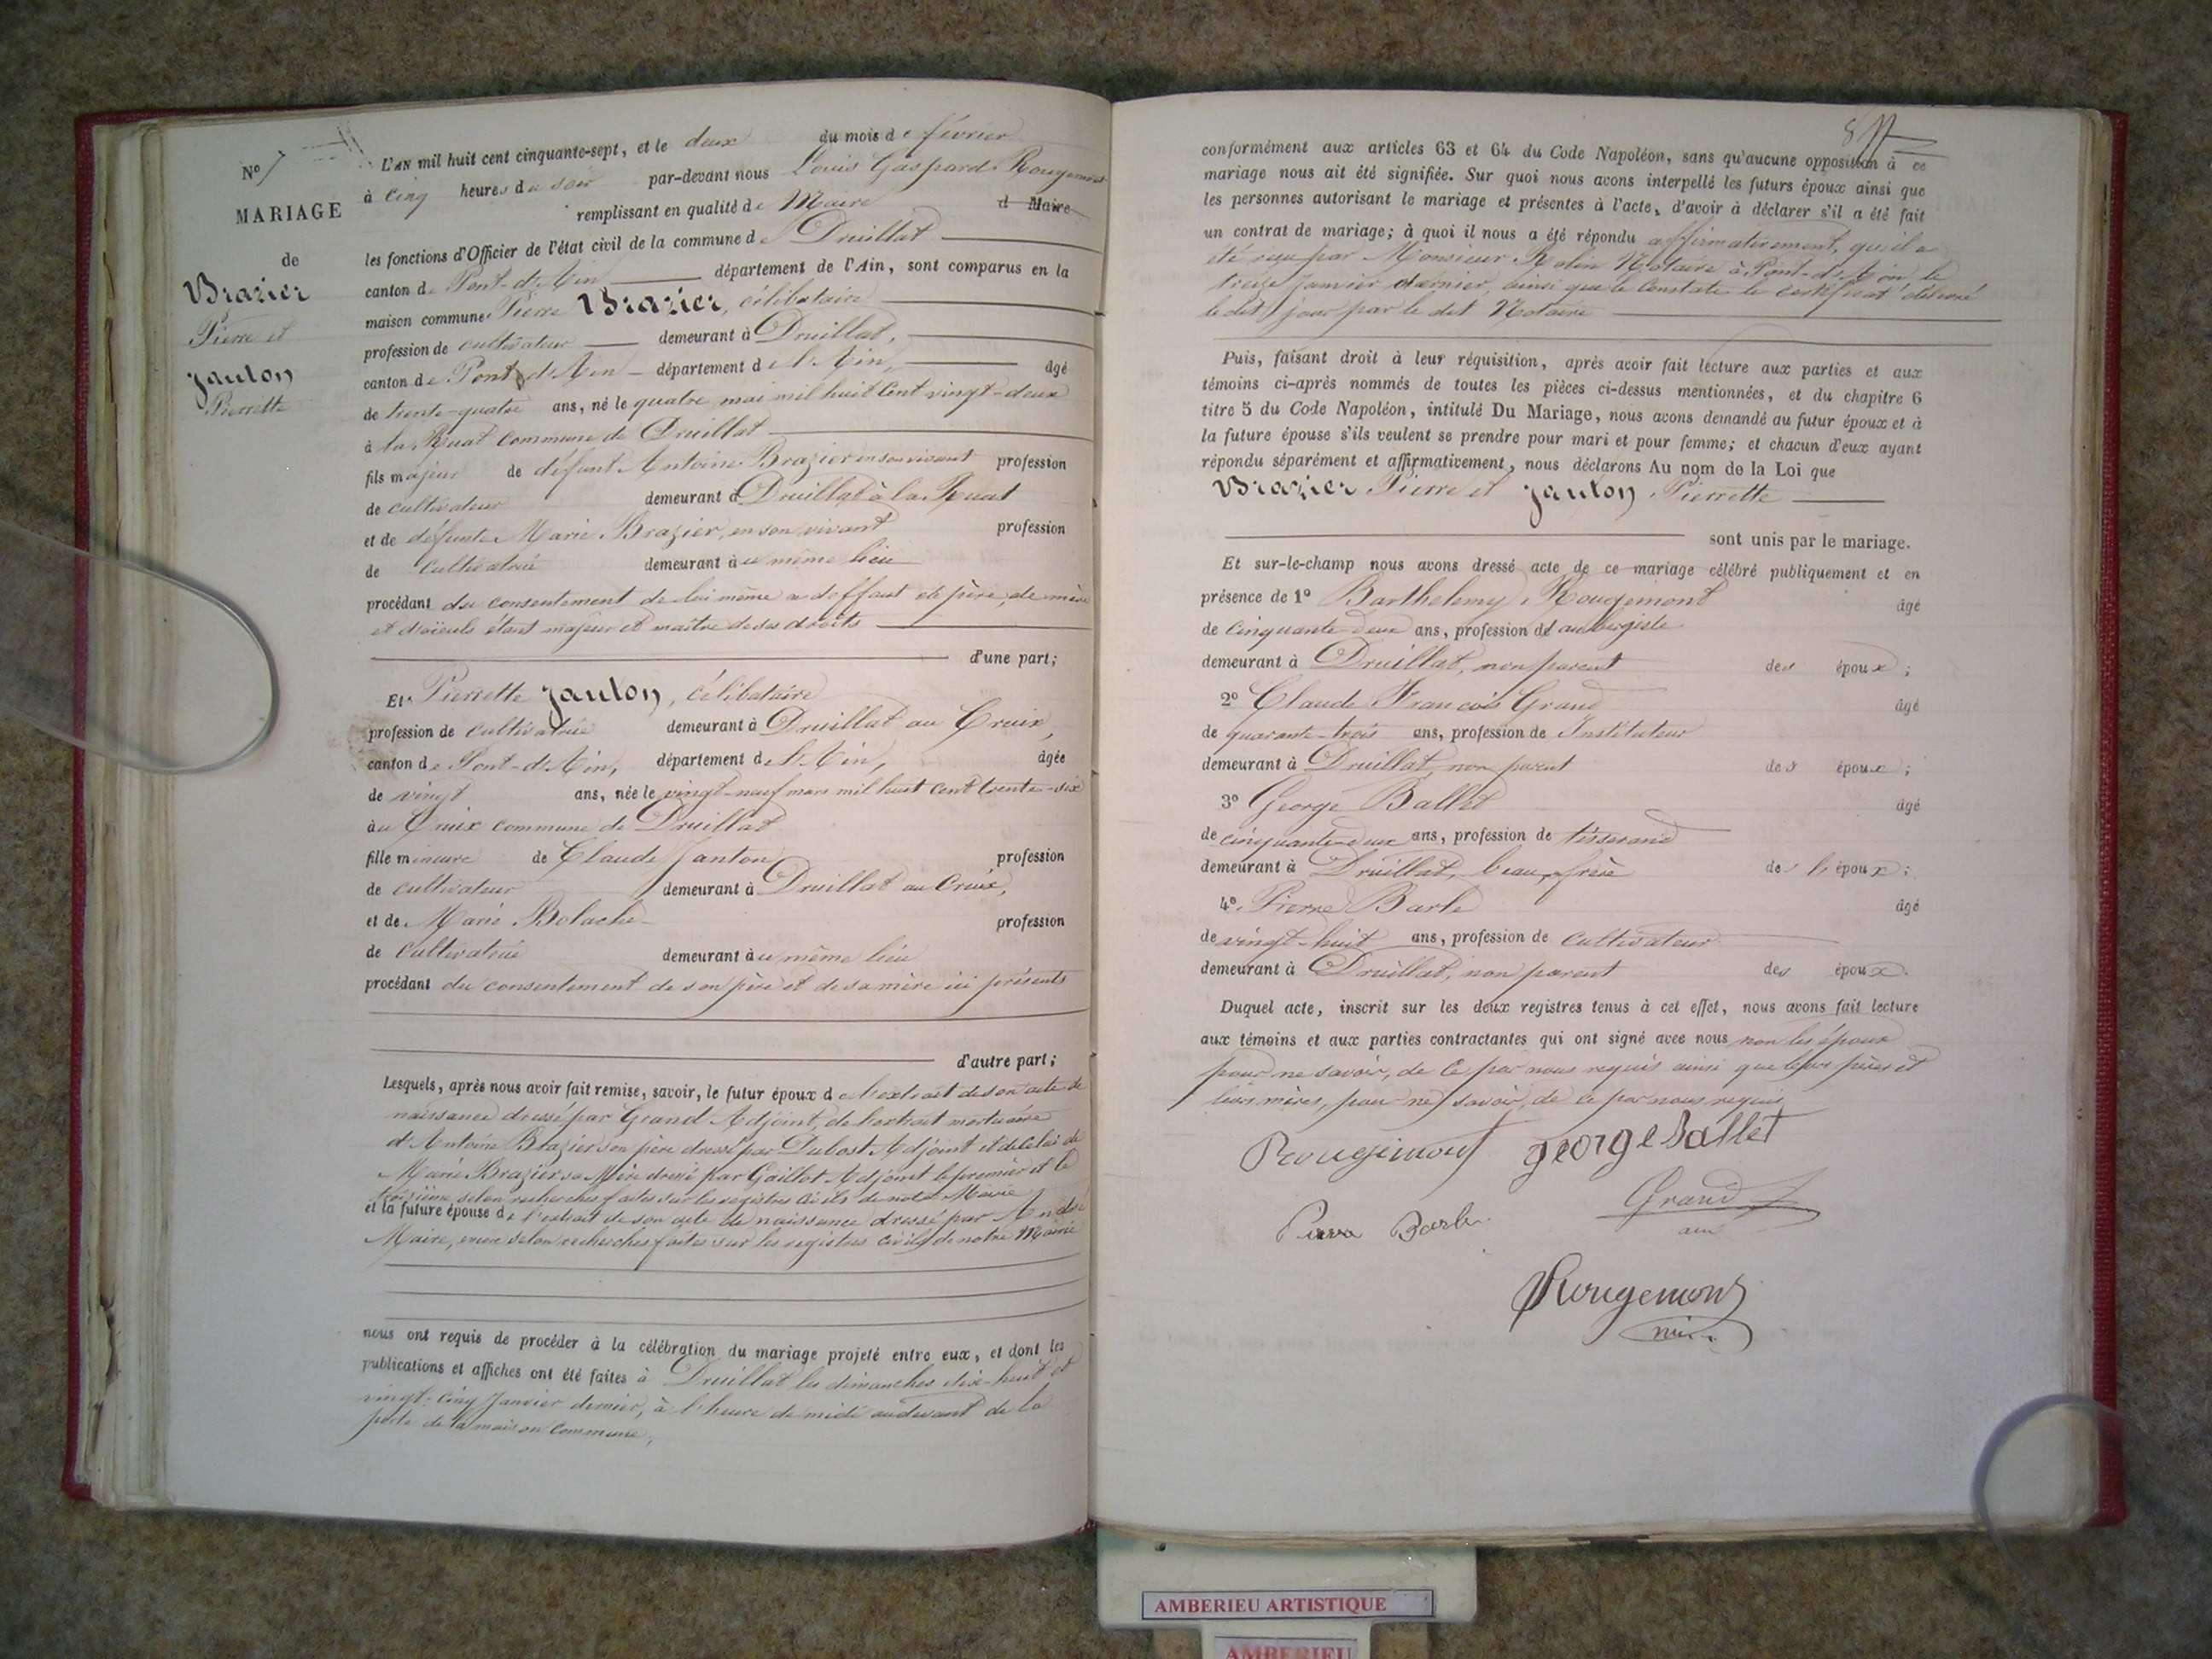 No 7
MARIAGE
de
Brazier
Pierre et
Janton
Pierrette
L'AN mil huit cent cinquante-sept, et le deux du mois de février
à cinq heures du soir par-devant nous Louis Gaspard Rougemont
remplissant en qualité de Maire d Maire
les fonctions d'Officier de l'état civil de la commune de Druillat
canton de Pont-d'Ain département de l'Ain, sont comparus en la
maison commune Pierre Brazier, célibataire
profession de cultivateur demeurant à Druillat,
canton de Pont d'Ain département de l'Ain, âgé
de trente-quatre ans, né le quatre mai mil huit cent vingt-deux
à la Ruat commune de Druillat
fils majeur de défunt Antoine Brazier en son vivant profession
de cultivateur demeurant à Druillat à la Ruat
et de défunte Marie Brazier, en son vivant profession
de cultivatrice demeurant au même lieu
procédant du consentement de lui même a deffaut de père, de mère
et d'aïeuls étant majeur et maître de ses droits
d'une part;
Et Pierrette Janton, célibataire
profession de cultivatrice demeurant à Druillat au Cruix,
canton de Pont-d'Ain, département de l'Ain, âgée
de vingt ans, née le vingt-neuf mars mil huit cent trente-six
au Cruix commune de Druillat
fille mineure de Claude Janton profession
de cultivateur demeurant à Druillat au Cruix,
et de Marie Bolache profession
de cultivatrice demeurant au même lieu
procédant du consentement de son père et de sa mère ici présents
d'autre part;
Lesquels, après nous avoir fait remise, savoir, le futur époux de l'extrait de son acte de
naissance dressé par Grand Adjoint, de l'extrait mortuaire
d'Antoine Brazier son père dressé par Dubost Adjoint et de celui de
Marie Brazier sa Mère dressé par Gaillot Adjoint le premier et le
troisième selon recherches faites sur les registres civils de notre Mairie
et la future épouse de l'extrait de son acte de naissance dressé par André
Maire, encore selon recherches faites sur les registres civils de notre Mairie
nous ont requis de procéder à la célébration du mariage projeté entre eux, et dont les
publications et affiches ont été faites à Druillat les dimanches dix-huit et
vingt-cinq Janvier dernier, à l'heure de midi audevant de la
porte de la maison commune,
conformément aux articles 63 et 64 du Code Napoléon, sans qu'aucune opposition à ce
mariage nous ait été signifiée. Sur quoi nous avons interpellé les futurs époux ainsi que
les personnes autorisant le mariage et présentes à l'acte, d'avoir à déclarer s'il a été fait
un contrat de mariage; à quoi il nous a été répondu affirmativement, qu'il a
été reçu par Monsieur Rolin Notaire à Pont-d'Ain le
treize Janvier dernier, ainsi que le constate le certificat délivré
le dit jour par le dit Notaire
Puis, faisant droit à leur réquisition, après avoir fait lecture aux parties et aux
témoins ci-après nommés de toutes les pièces ci-dessus mentionnées, et du chapitre 6
titre 5 du Code Napoléon, intitulé Du Mariage, nous avons demandé au futur époux et à
la future épouse s'ils veulent se prendre pour mari et pour femme; et chacun d'eux ayant
répondu séparément et affirmativement, nous déclarons Au nom de la Loi que
Brazier Pierre et Janton Pierrette
sont unis par le mariage.
Et sur-le-champ nous avons dressé acte de ce mariage célébré publiquement et en
présence de 1° Barthelemy Rougemont âgé
de cinquante-deux ans, profession d'aubergiste
demeurant à Druillat, non parent des époux;
2° Claude François Grand âgé
de quarante-trois ans, profession de Instituteur
demeurant à Druillat, non parent des époux;
3° George Ballet âgé
de cinquante-deux ans, profession de tisserand
demeurant à Druillat, beau-frère de l'époux;
4° Pierre Barle âgé
de vingt-huit ans, profession de cultivateur
demeurant à Druillat, non parent des époux.
Duquel acte, inscrit sur les deux registres tenus à cet effet, nous avons fait lecture
aux témoins et aux parties contractantes qui ont signé avec nous non les époux
pour ne savoir, de ce par nous requis ainsi que leurs pères et
leurs mères, pour ne savoir, de ce par nous requis
Rougemont george ballet
Pierre Barle Grand
Rougemont
AMBERIEU ARTISTIQUE
AMBERIEU